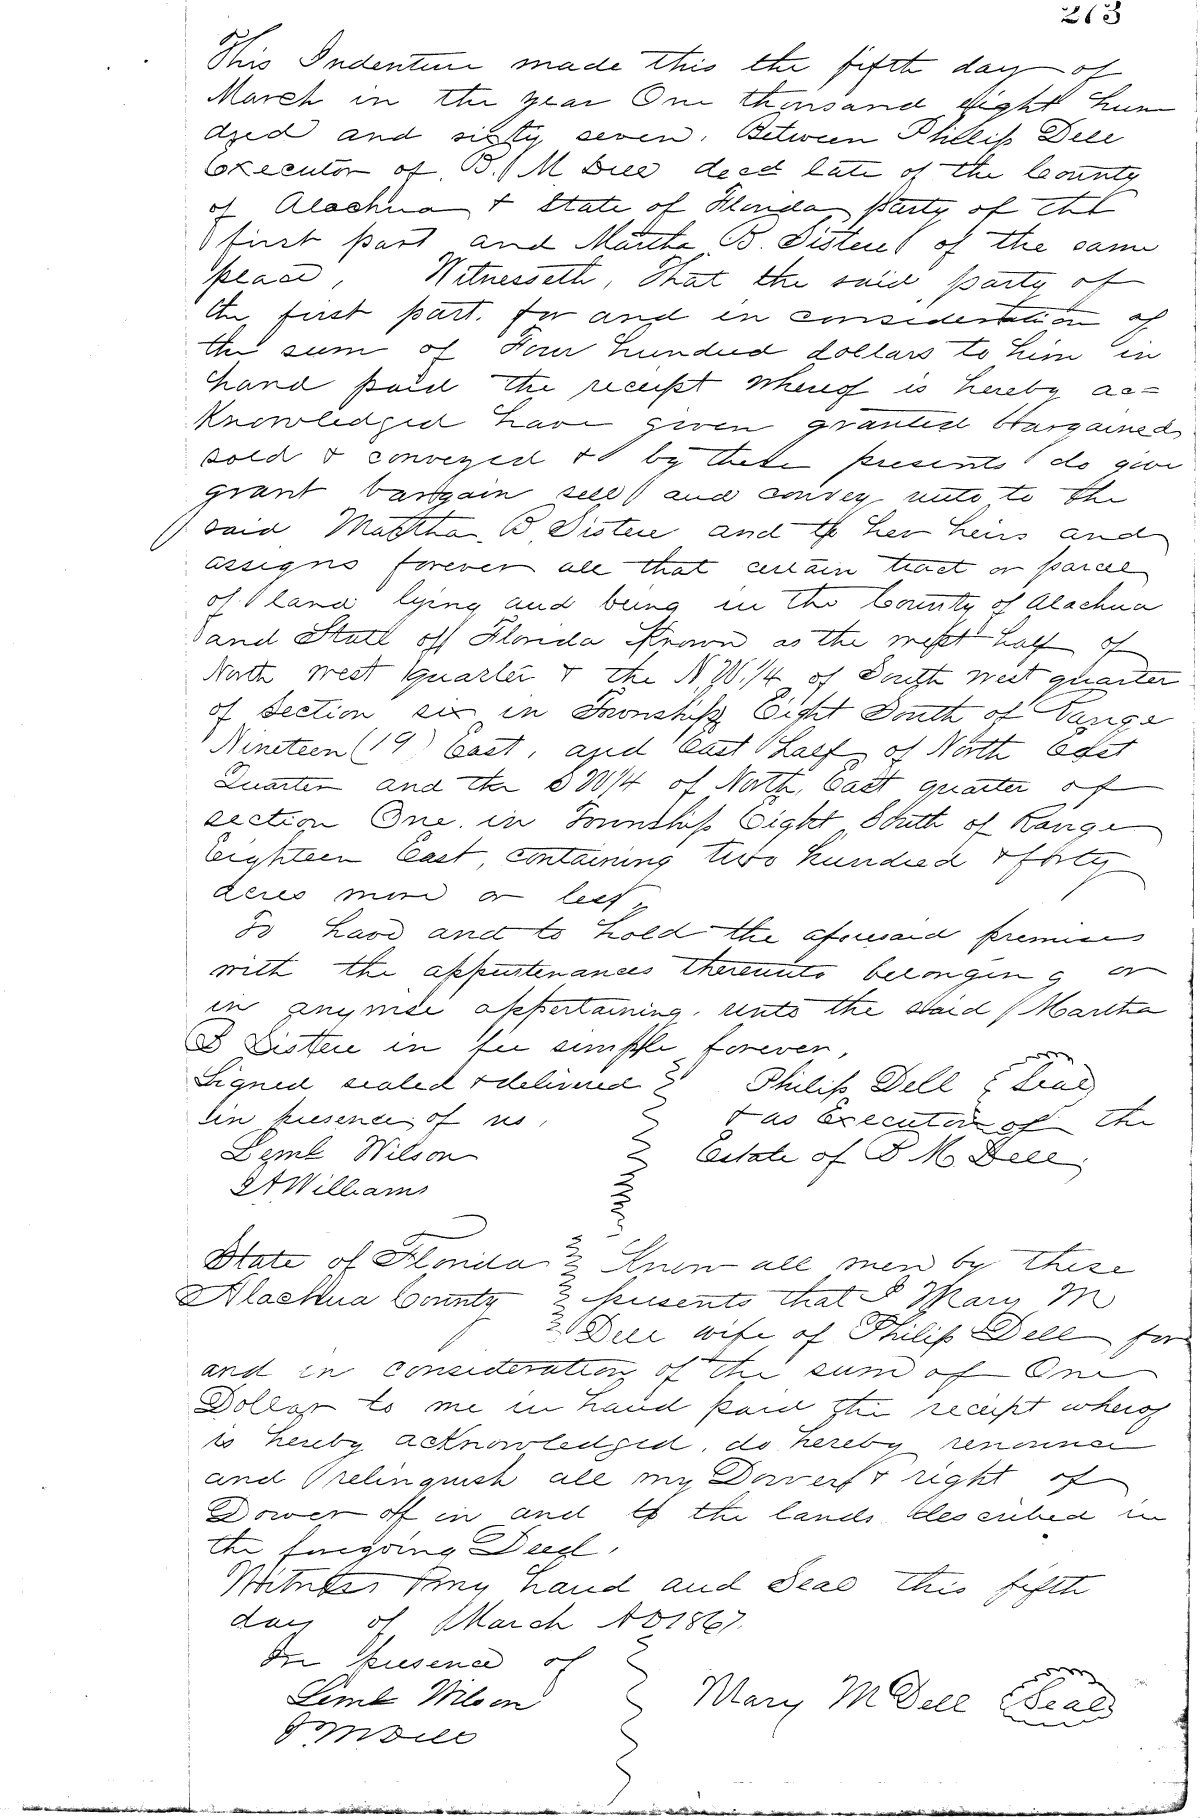 213
This Indenture made this the fifth day of
March in the year One thousand eight hun
dred and sixty seven. Between Phillip Dell
Executor of B. M Dell decd late of the County
of Alachua & State of Florida party of the
first part and Martha B. Sistere of the same
place, Witnesseth, That the said party of
the first part. for and in consideration of
the sum of Four hundred dollars to him in
hand paid the receipt whereof is hereby ac=
knowledged have given granted bargained
sold & conveyed & by these presents do give
grant bargain sell and convey unto to the
said Martha B Sistere and to her heirs and
assigns forever all that certain tract or parcel
of land lying and being in the County of Alachua
and State off Florida Known as the west half of
North West quarter & the N.W.1/4 of South west quarter
of Section six in Township Eight South of Range
Nineteen (19) East, and East half of North East
Quarter and the SW1/4 of North East quarter of
section One in Township Eight South of Range
Eighteen East, containing two hundred & forty
acres more or less,
To have and to hold the aforesaid premises
with the appurtenances thereunto belonging or
in anywise appertaining. unto the said Martha
B Sistere in fee simple forever,
Signed sealed & delivered Philip Dell Seal
in presence of us, & as Executor of the
Lemk Wilson Estate of B M Dell,
Williams
State of Florida Know all men by these
Alachua County presents that I Mary M
Dell wife of Philip Dell for
and in consideration of the sum of One
Dollar to me in hand paid the receipt whereof
is hereby acknowledged, do hereby renounce
and relinquish all my Dower & right of
Dower off in and to the lands described in
the foregoing Deed.
Witness my hand and Seal this fifth
day of March AD 1867.
In presence of
Lemk Wilson Mary M Dell Seal
J M Dell